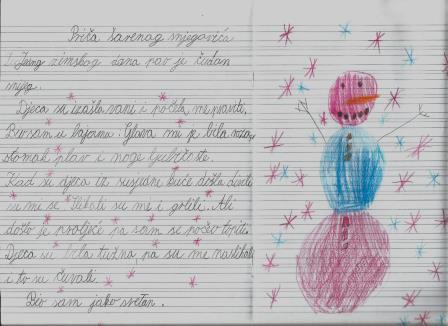 Priča šarenog snjegovića
Jednog zimskog dana pao je čudan
snijeg.
Djeca su izašla vani i počela me praviti.
Bio sam u bojama: Glava mi je bila roza,
stomak plav i noge ljubičaste.
Kad su djeca iz susjedne kuće došla divila
su mi se. Slikali su me i grlili. Ali
došlo je proljeće pa sam se počeo topiti.
Djeca su bila tužna pa su me naslikali
i to su čuvali.
Bio sam jako sretan.